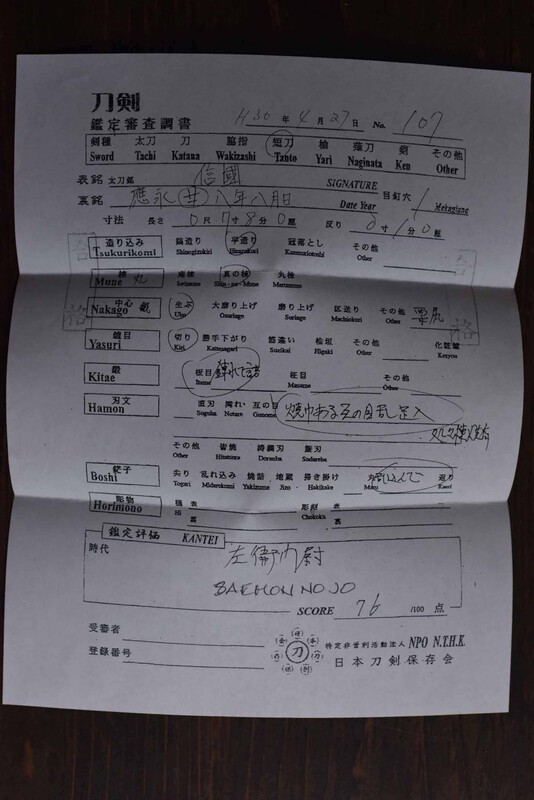 刀剣
鑑定審査調書 H30年4月27日 No. 107
剣種 太刀 刀 脇指 短刀 槍 薙刀 剣 その他
Sword Tachi Katana Wakizashi Tanto Yari Naginata Ken Other
表銘 太刀銘 信國 SIGNATURE
裏銘 應永(廿)八年八月日 Date Year 目釘穴 1 Mekugiana
寸法 長さ 0尺7寸8分0厘 反り 0寸1分0厘
造り込み 鎬造り 平造り 冠落とし その他
Tsukurikomi Shinogizukuri Hirazukuri Kanmuriotoshi Other
棟 丸 庵棟 真の棟 丸棟
Mune Iorimune Shin-no-Mune Marumune
中心 生ぶ 大磨り上げ 磨り上げ 区送り その他 栗尻
Nakago Ubu Osuriage Suriage Machiokuri Other
鑢目 切り 勝手下がり 筋違い 桧垣 その他 化粧鑢
Yasuri Kiri Kattesagari Sujikai Higaki Other Kesyou
鍛 板目 柾目 その他
Kitae Itame Masame Other
刃文 直刃 湾れ 互の目 焼巾ある互の目乱 足入
Hamon Suguha Notare Gunome
その他 皆焼 濤瀾刃 簾刃
Other Hitatsura Doranba Sudareba
鋩子 尖り 乱れ込み 焼詰 地蔵 掃き掛け 丸 返り
Boshi Togari Midarekomi Yakizume Jizo Hakikake Maru Kaeri
彫物 樋 表 彫刻 表
Horimono Hi 裏 Chokoku 裏
鑑定評価 KANTEI
時代 左衛門尉
SAEMON NO JO
SCORE 76 /100 点
受審者
登録番号
刀
特定非営利活動法人 NPO N.T.H.K.
日本刀剣保存会
合格
合格